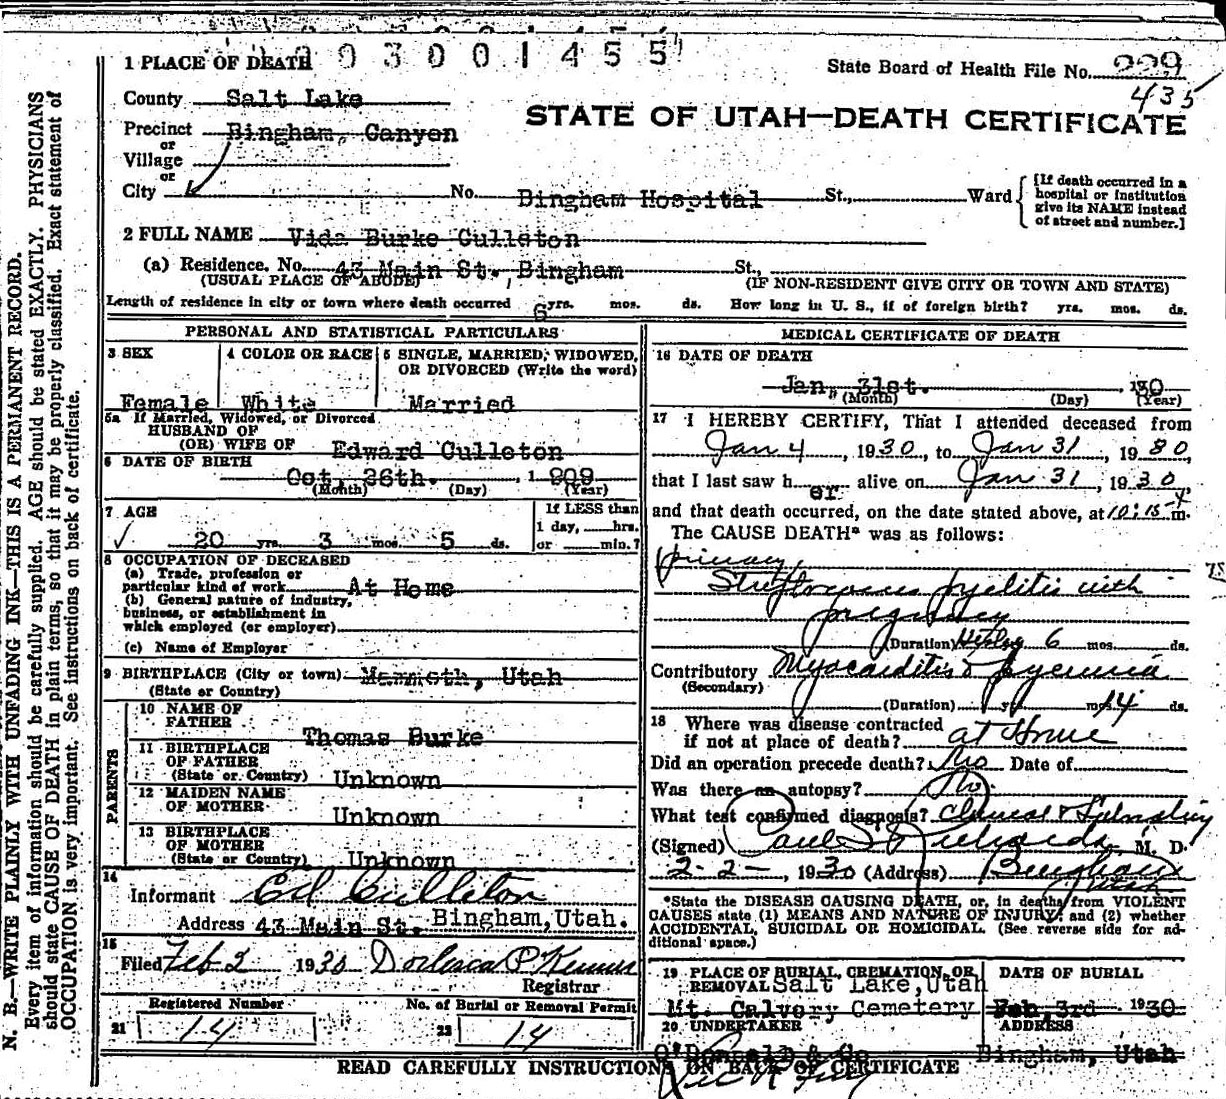 0 3 0 0 1 4 5 5
1 PLACE OF DEATH
State Board of Health File No. 229
435
County Salt Lake
STATE OF UTAH—DEATH CERTIFICATE
Precinct Bingham, Canyon
or
Village
or
City No. Bingham Hospital St., Ward
[If death occurred in a
hospital or institution
give its NAME instead
of street and number.]
2 FULL NAME Vida Burke Culleton
(a) Residence. No. 43 Main St., Bingham St.,
(USUAL PLACE OF ABODE) (IF NON-RESIDENT GIVE CITY OR TOWN AND STATE)
Length of residence in city or town where death occurred 6 yrs. mos. ds. How long in U. S., if of foreign birth? yrs. mos. ds.
PERSONAL AND STATISTICAL PARTICULARS
3 SEX
Female
4 COLOR OR RACE
White
5 SINGLE, MARRIED, WIDOWED,
OR DIVORCED (Write the word)
Married
5a If Married, Widowed, or Divorced
HUSBAND OF
(OR) WIFE OF Edward Culleton
6 DATE OF BIRTH
Oct, 26th. 1909
(Month) (Day) (Year)
7 AGE
✓ 20 yrs. 3 mos. 5 ds.
If LESS than
1 day, hrs.
or min.?
8 OCCUPATION OF DECEASED
(a) Trade, profession or
particular kind of work At Home
(b) General nature of industry,
business, or establishment in
which employed (or employer)
(c) Name of Employer
9 BIRTHPLACE (City or town) Mammoth, Utah
(State or Country)
PARENTS
10 NAME OF
FATHER Thomas Burke
11 BIRTHPLACE
OF FATHER
(State or Country) Unknown
12 MAIDEN NAME
OF MOTHER Unknown
13 BIRTHPLACE
OF MOTHER
(State or Country) Unknown
14
Informant Ed Culleton
Address 43 Main St. Bingham, Utah.
15
Filed Feb 2 1930 P Kenner
Registrar
Registered Number
21 14
No. of Burial or Removal Permit
22 14
MEDICAL CERTIFICATE OF DEATH
16 DATE OF DEATH
Jan, 31st. , 1930
(Month) (Day) (Year)
17 I HEREBY CERTIFY, That I attended deceased from
Jan 4, 1930, to Jan 31, 1930,
that I last saw her alive on Jan 31, 1930,
and that death occurred, on the date stated above, at 10:15 m.
The CAUSE DEATH* was as follows:
primary
Streptococcus pyelitis with
pregnancy
(Duration) 6 mos. ds.
Contributory Myocarditis & pyemia
(Secondary)
(Duration) yrs. mos. 14 ds.
18 Where was disease contracted
if not at place of death? at Home
Did an operation precede death? No Date of
Was there an autopsy? No
What test confirmed diagnosis? Clinical &
(Signed) Paul S Richards, M. D.
2-2-, 1930 (Address) Bingham
Utah
*State the DISEASE CAUSING DEATH, or, in deaths from VIOLENT
CAUSES state (1) MEANS AND NATURE OF INJURY; and (2) whether
ACCIDENTAL, SUICIDAL OR HOMICIDAL. (See reverse side for ad-
ditional space.)
19 PLACE OF BURIAL, CREMATION, OR
REMOVAL Salt Lake, Utah
Mt. Calvory Cemetery
DATE OF BURIAL
Feb, 3rd 1930
20 UNDERTAKER
O'Donnald & Co
ADDRESS
Bingham, Utah
READ CAREFULLY INSTRUCTIONS ON BACK OF CERTIFICATE
N. B.—WRITE PLAINLY WITH UNFADING INK—THIS IS A PERMANENT RECORD.
Every item of information should be carefully supplied. AGE should be stated EXACTLY. PHYSICIANS
should state CAUSE OF DEATH in plain terms, so that it may be properly classified. Exact statement of
OCCUPATION is very important. See instructions on back of certificate.